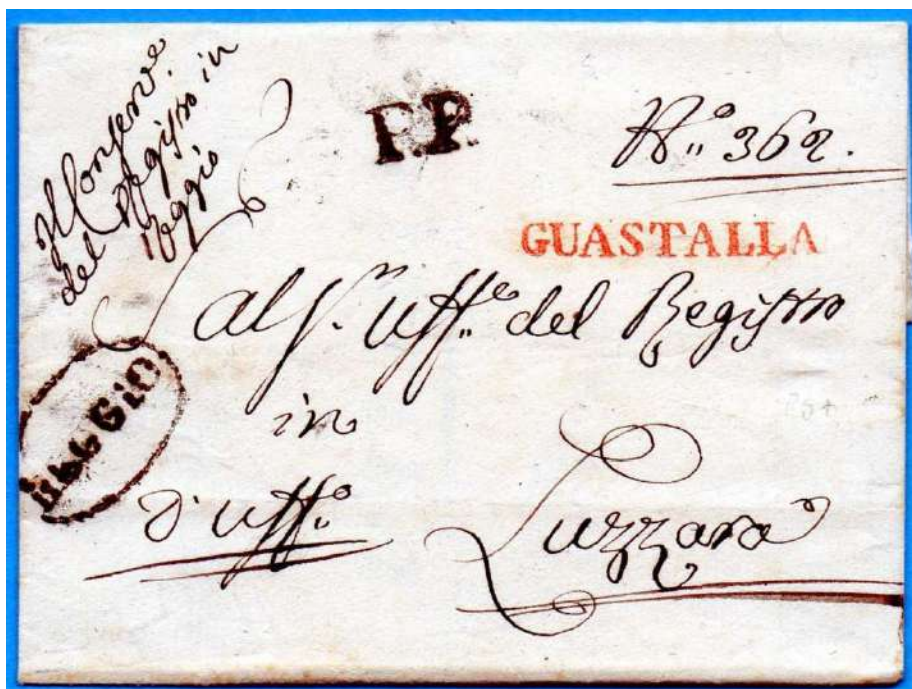 Il Conserve.
del Registro in
Reggio
P.P.
N.º 362.
GUASTALLA
al Sr. Uff.º del Registro
in
REGGIO
d'uff.º
Luzzara